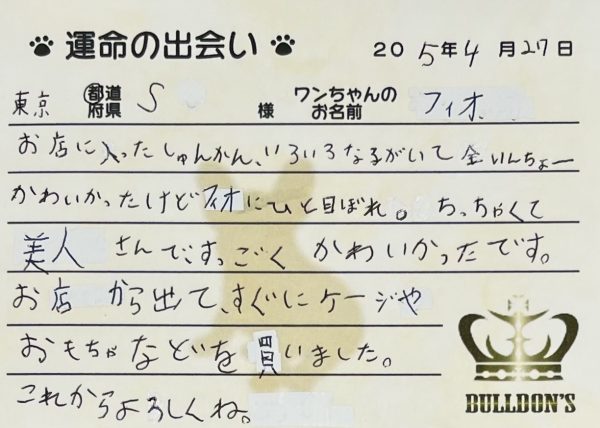 運命の出会い
205年4月27日
東京 都道府県 S 様 ワンちゃんのお名前 フィオ
お店に入ったしゅんかん、いろいろな るがいて全いんちょー
かわいかったけどフィオにひと目ぼれ。ちっちゃくて
美人さんですっごくかわいかったです。
お店から出て、すぐにケージや
おもちゃなどを買いました。
これからよろしくね。
BULLDON'S